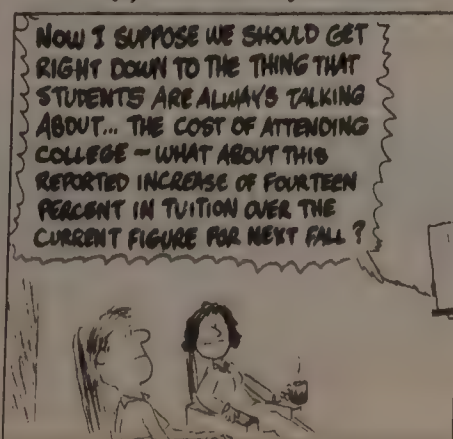 NOW I SUPPOSE WE SHOULD GET
RIGHT DOWN TO THE THING THAT
STUDENTS ARE ALWAYS TALKING
ABOUT... THE COST OF ATTENDING
COLLEGE ~ WHAT ABOUT THIS
REPORTED INCREASE OF FOURTEEN
PERCENT IN TUITION OVER THE
CURRENT FIGURE FOR NEXT FALL?